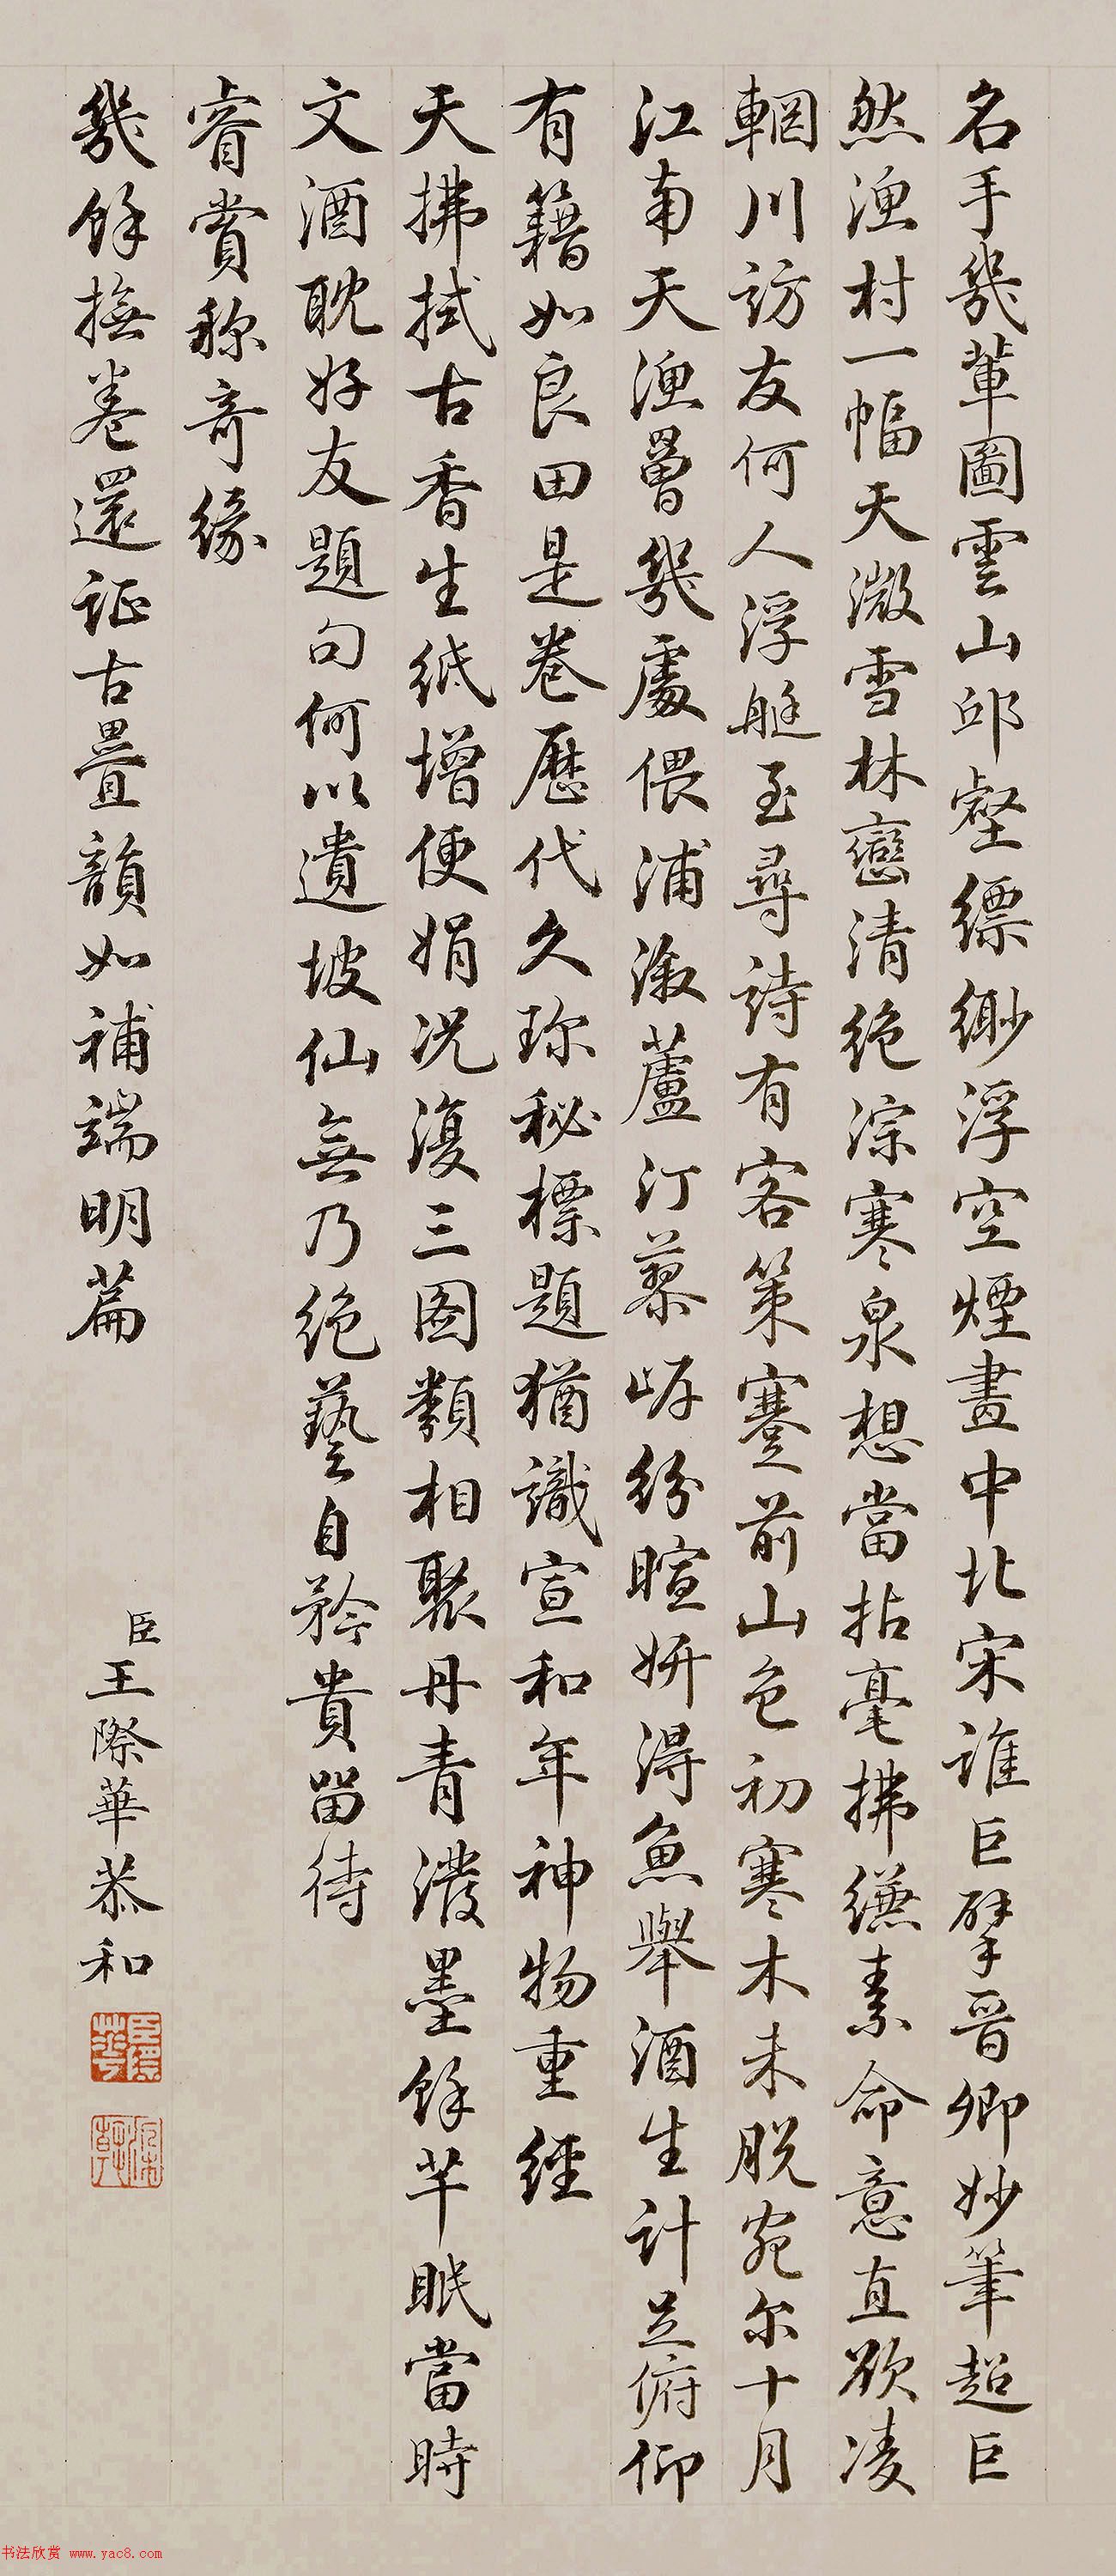 名手幾輩圖雲山邱壑縹緲浮空煙畫中北宋誰巨擘晋卿妙筆超巨
然漁村一幅天微雪林巒清絶淙寒泉想當拈毫拂縑素命意直欲凌
輞川訪友何人浮艇至尋詩有客策蹇前山色初寒木未脱宛尔十月
江南天漁罾幾處偎浦溆蘆汀蓼岸紛暄妍得魚舉酒生計足俯仰
有籍如良田是卷歷代久珎秘標題猶識宣和年神物重經
天拂拭古香生紙增便娟况復三圖類相聚丹青潑墨餘芊眠當時
文酒耽好友題句何以遺坡仙無乃絶藝自矜貴留待
睿賞称奇緣
幾餘撫卷還証古疊韻如補端明篇
臣王際華恭和
臣際華
书法欣赏 www.yac8.com